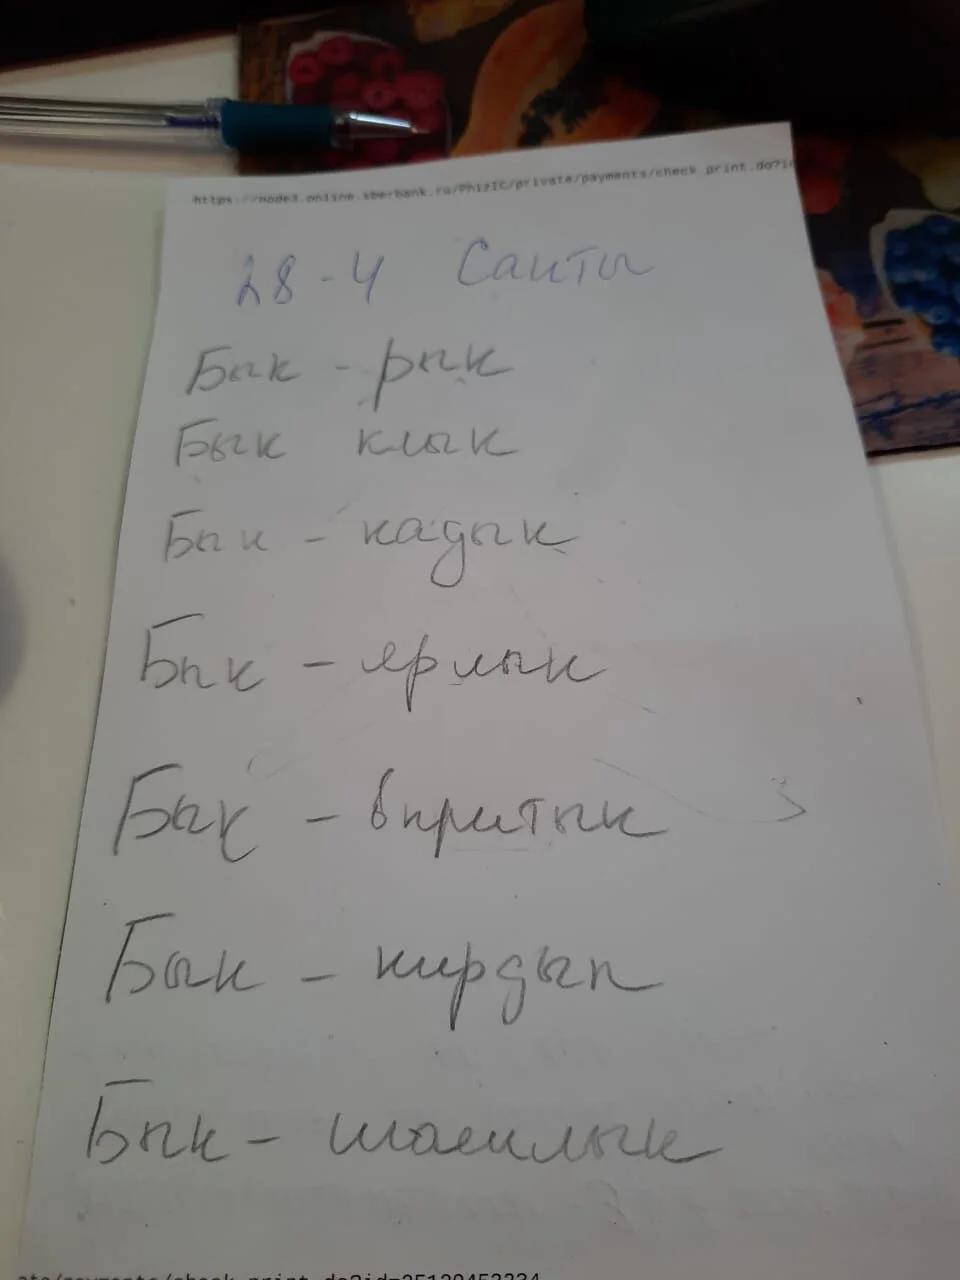 https://node3.online.sberbank.ru/PhizIC/private/payments/check_print.do?i
28-4 Саиты
Бык - рык
Бык клык
Бык - кадык
Бык - ярлык
Бык - впритык
Бык - кирдык
Бык - шашлык
ate/payments/check_print.do?id=25129453234